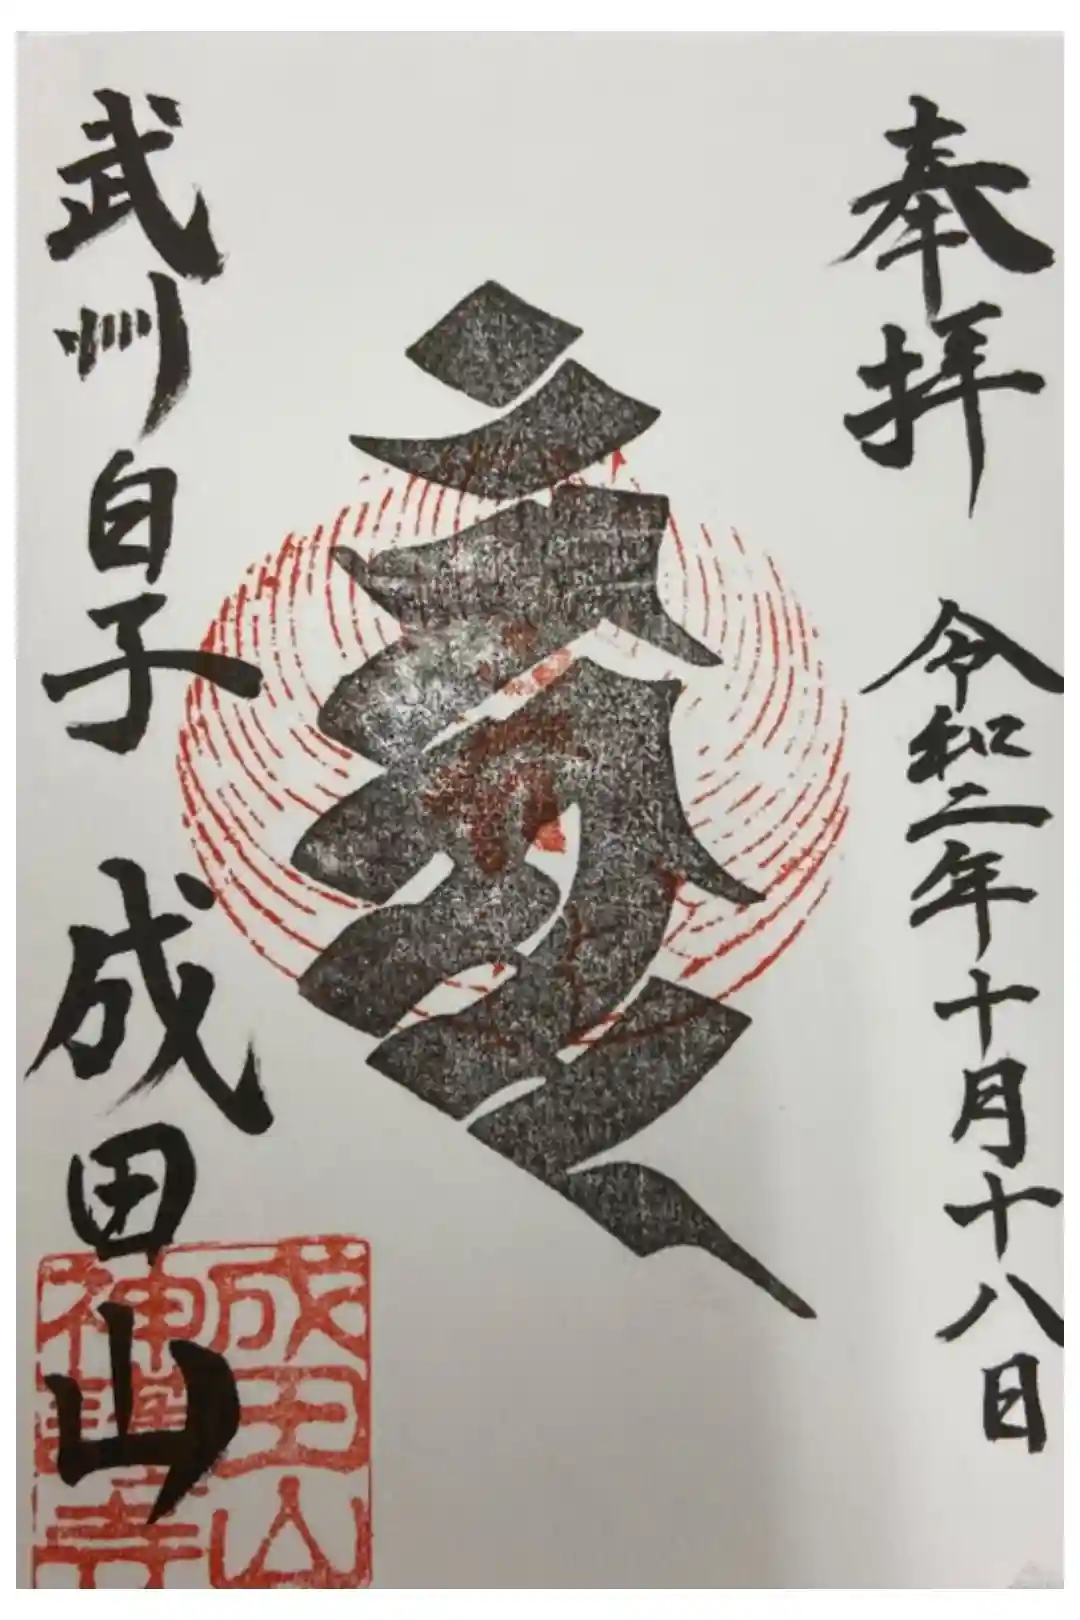 奉拝
令和二年十月十八日
武州白子 成田山
成田山
神 寺